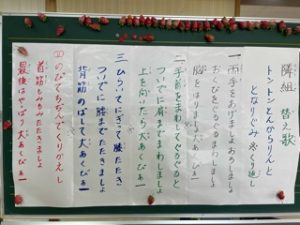 隣組 替え歌
トントントンからりんと
となりぐみ くり返し
一 両手をあげましょおろしましょ
おくびをぐるぐるまわしましょ
腕を
二 手首をまわしてぐるぐると
ついでに肩までまわしましょ
上を向いたら大あくび
三 ひらいてにぎって膝たたき
ついでに腰までたたきましょ
背筋のばして大あくび
四 のびてちぢんでくりかえし
首筋もみもみたたきましょ
最後はやっぱり大あくび